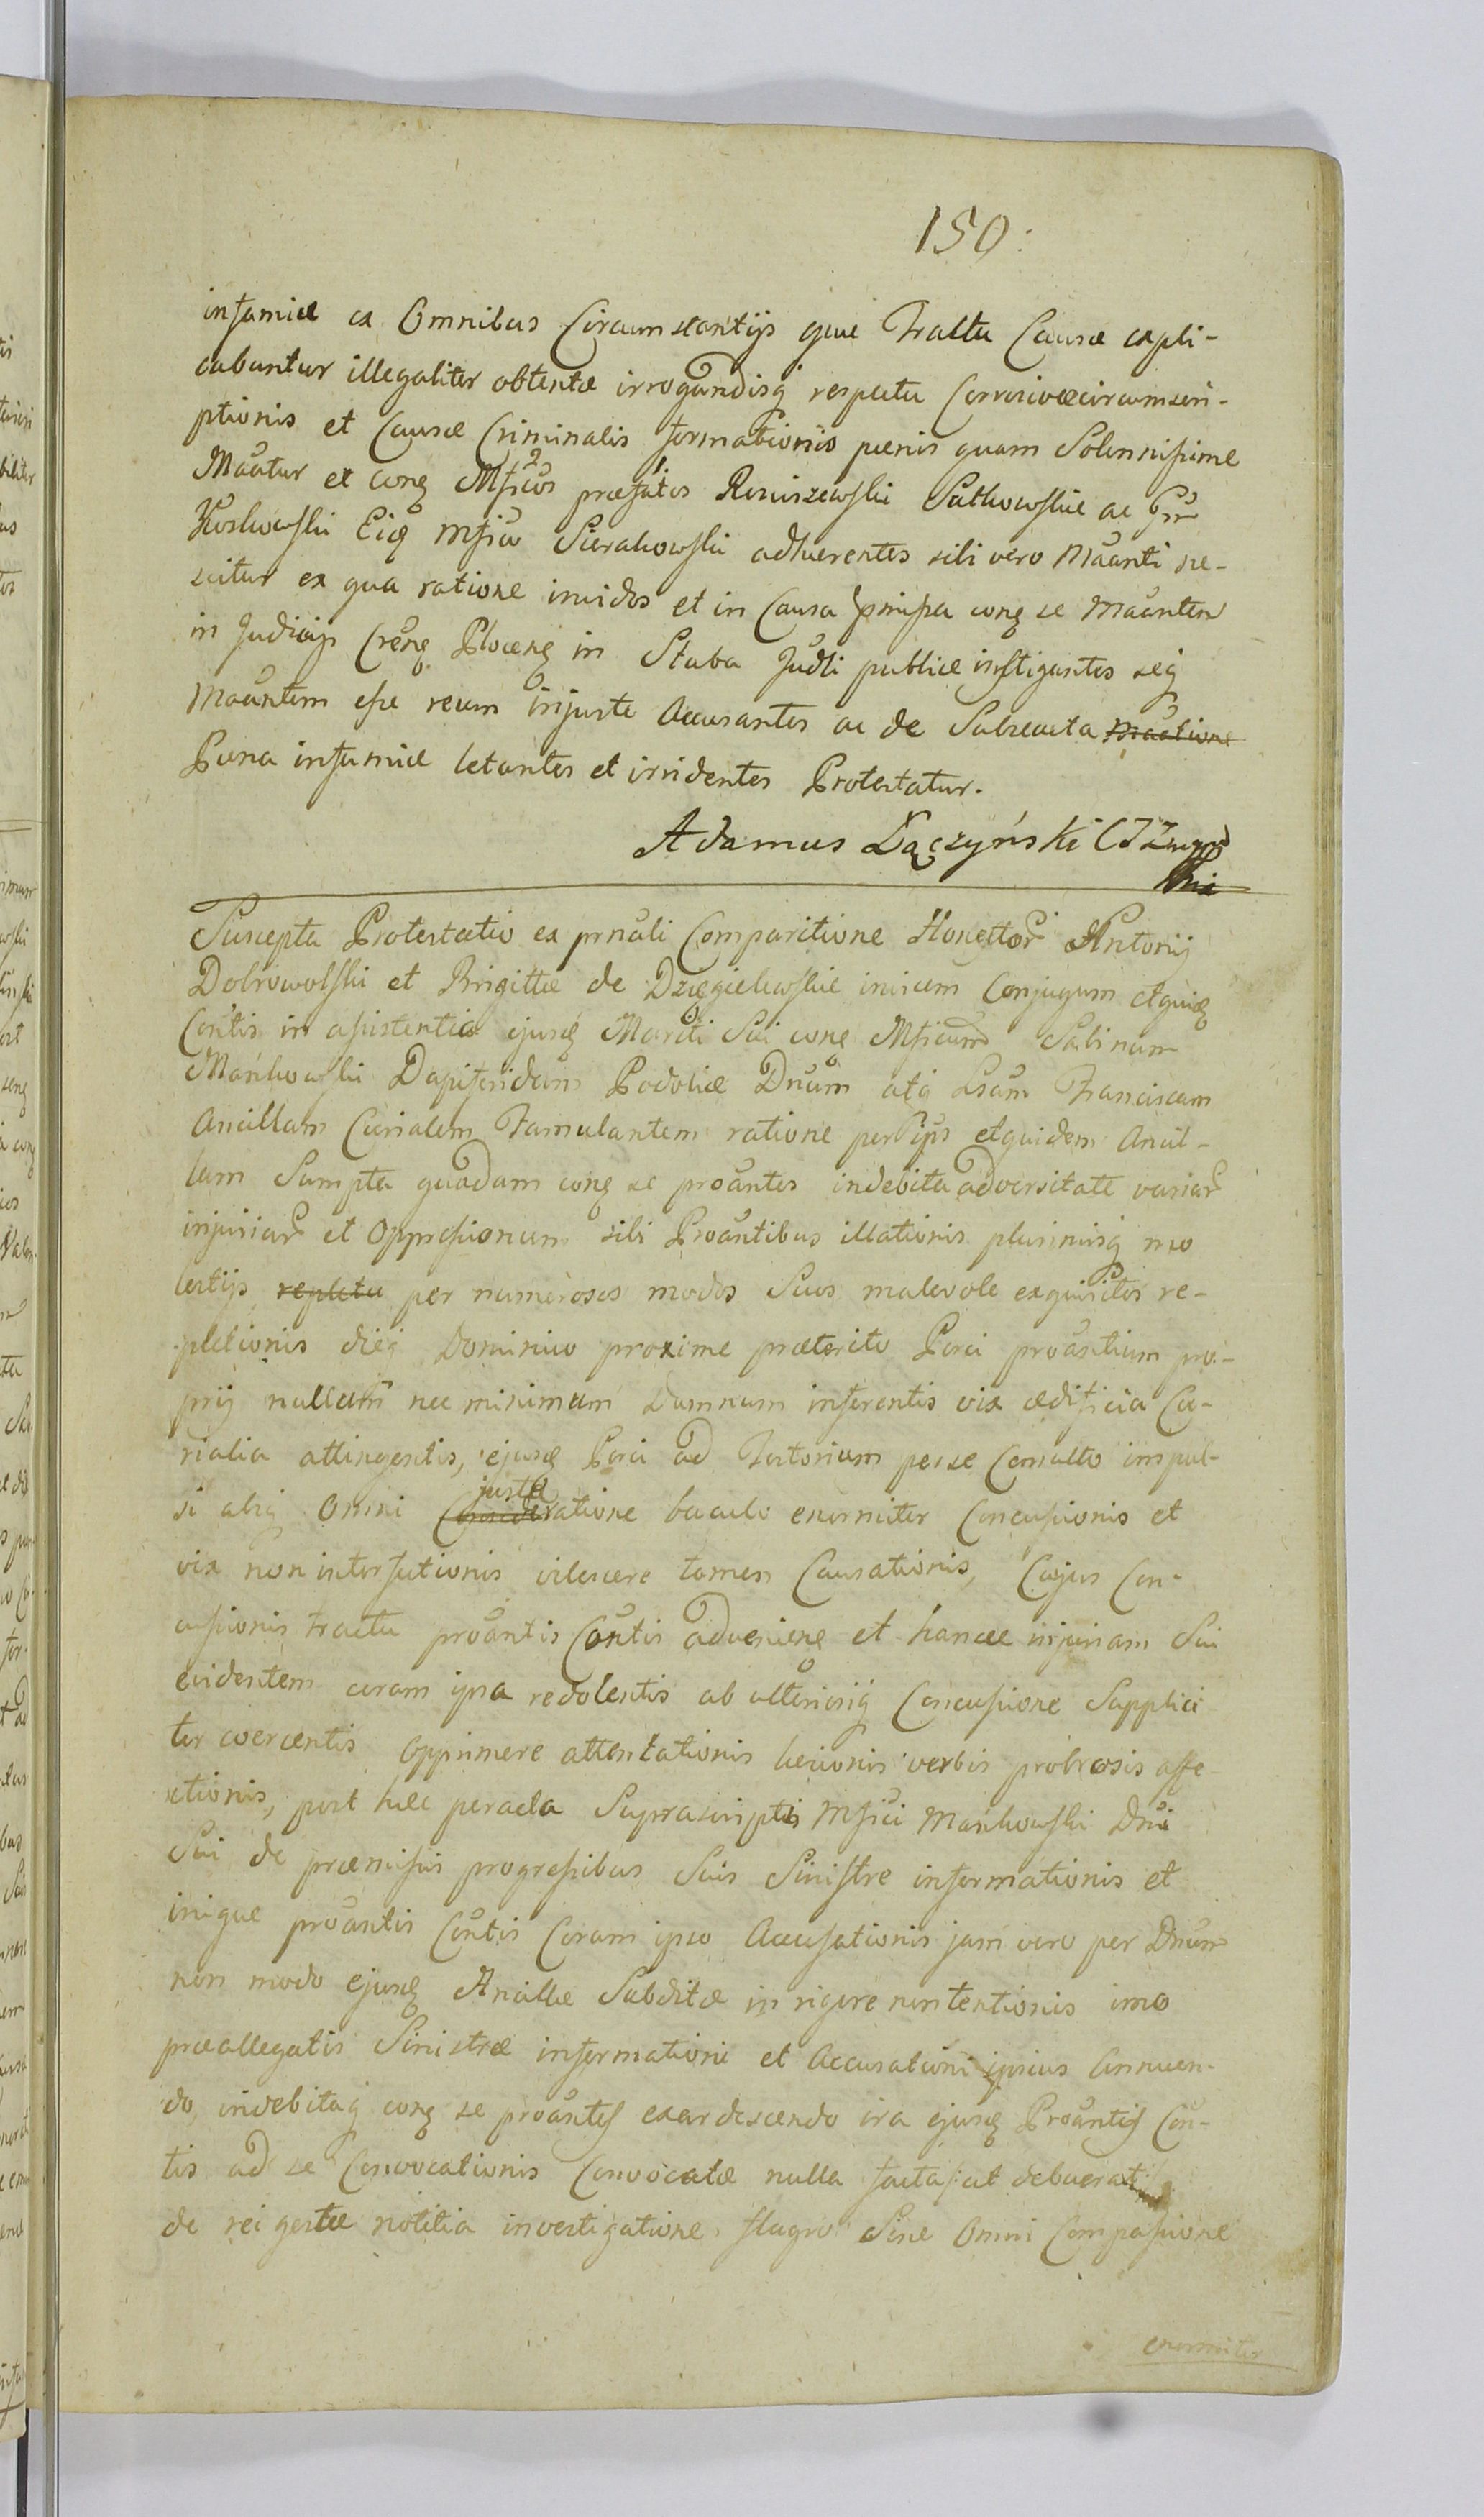 150:
infamiæ ex Omnibus Circumstantijs quæ Tractu Causæ expli-
cabuntur illegaliter obtentæ irrogandisq respectu Corrosivæ circumscri-
ptionis et Causæ Criminalis formationis pænis quam Solennissime
Maātur et conq Mficos præfatos Rosciszewski Sutkowskie ac Grm
Koskowski Eiq Mfico Sierakowski adhærentes sibi vero Maānti ne-
scitur ex qua ratione invidos et in Causa conq se Maāntem
in Judicijs Crēnq Plocenq in Stuba Judli publice instigantes seq
Maāntem esse reum injuste Accusantes ac de Subsecuta Maātione
Pæna infamiæ letantes et irridentes Protestatur.
Adamus Łączyński
Suscepta Protestatio ex prnāli Comparitione Honestor Antonij
Dobrowolski et Brigittæ de Dzięgielewskie invicem Conjugum etquiq
Coñtis in assistentia ejusq Mariti Sui conq Mficum Sabinum
Mańkowski Dapiferidam Podoliæ Dnūm atq Lsam Franciscam
Ancillam Curialem Famulantem ratione per ipsos etquidem Ancil-
lam Sumpta quadam conq se proāntes indebita adversitate variar
injuriar et Oppressionum sibi Proāntibus illationis plurimisq mo
lestijs repletu per numerosos modos Suos malevole exquisitos re-
pletionis dieq Dominico proxime præterito Porci proāntium pro-
prij nullum nec minimum damnum inferentis vix ædificia Cu-
rialia attingentis, ejusq Porci ad Factorium per se Consulto impul-
si absq Omni justa Consideratione baculo enormiter Concussionis et
vix non interfectionis vilescere tamen Causationis, Cujus Con-
cussionis tractu proāntis Coñtis advenienq et hancce injuriam Sui
evidentem coram ipsa redolentis ab ulteriorig Concussione Supplici
ter coercentis Opprimere attentationis læsionis verbis probrosis affe-
ctionis, post hæc peracta Suprascriptis Mfici Mańkowski Dni
Sui de præmissis progressibus Suis Sinistre informationis et
inique proāntis Coñtis Coram ipso Accusationis jam vero per Dnūm
non modo ejusq Ancillæ Subditæ in rigore nontentionis imo
præallegatis Sinistræ informationi et Accusationi ipsius Annuen-
do, indebitaq conq se proāntes exardescendo ira ejusq Proāntis Coñ-
tis ad se Convocationis Convocatæ nulla facta/: ut debuerat
de rei gestæ notitia investigatione, flagro Sine Omni Compassione
enormiter